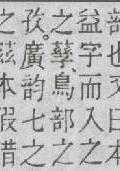 部也又曰本
益字而入之
之孳鳥部之
孜。廣韵七之
之茲本假借